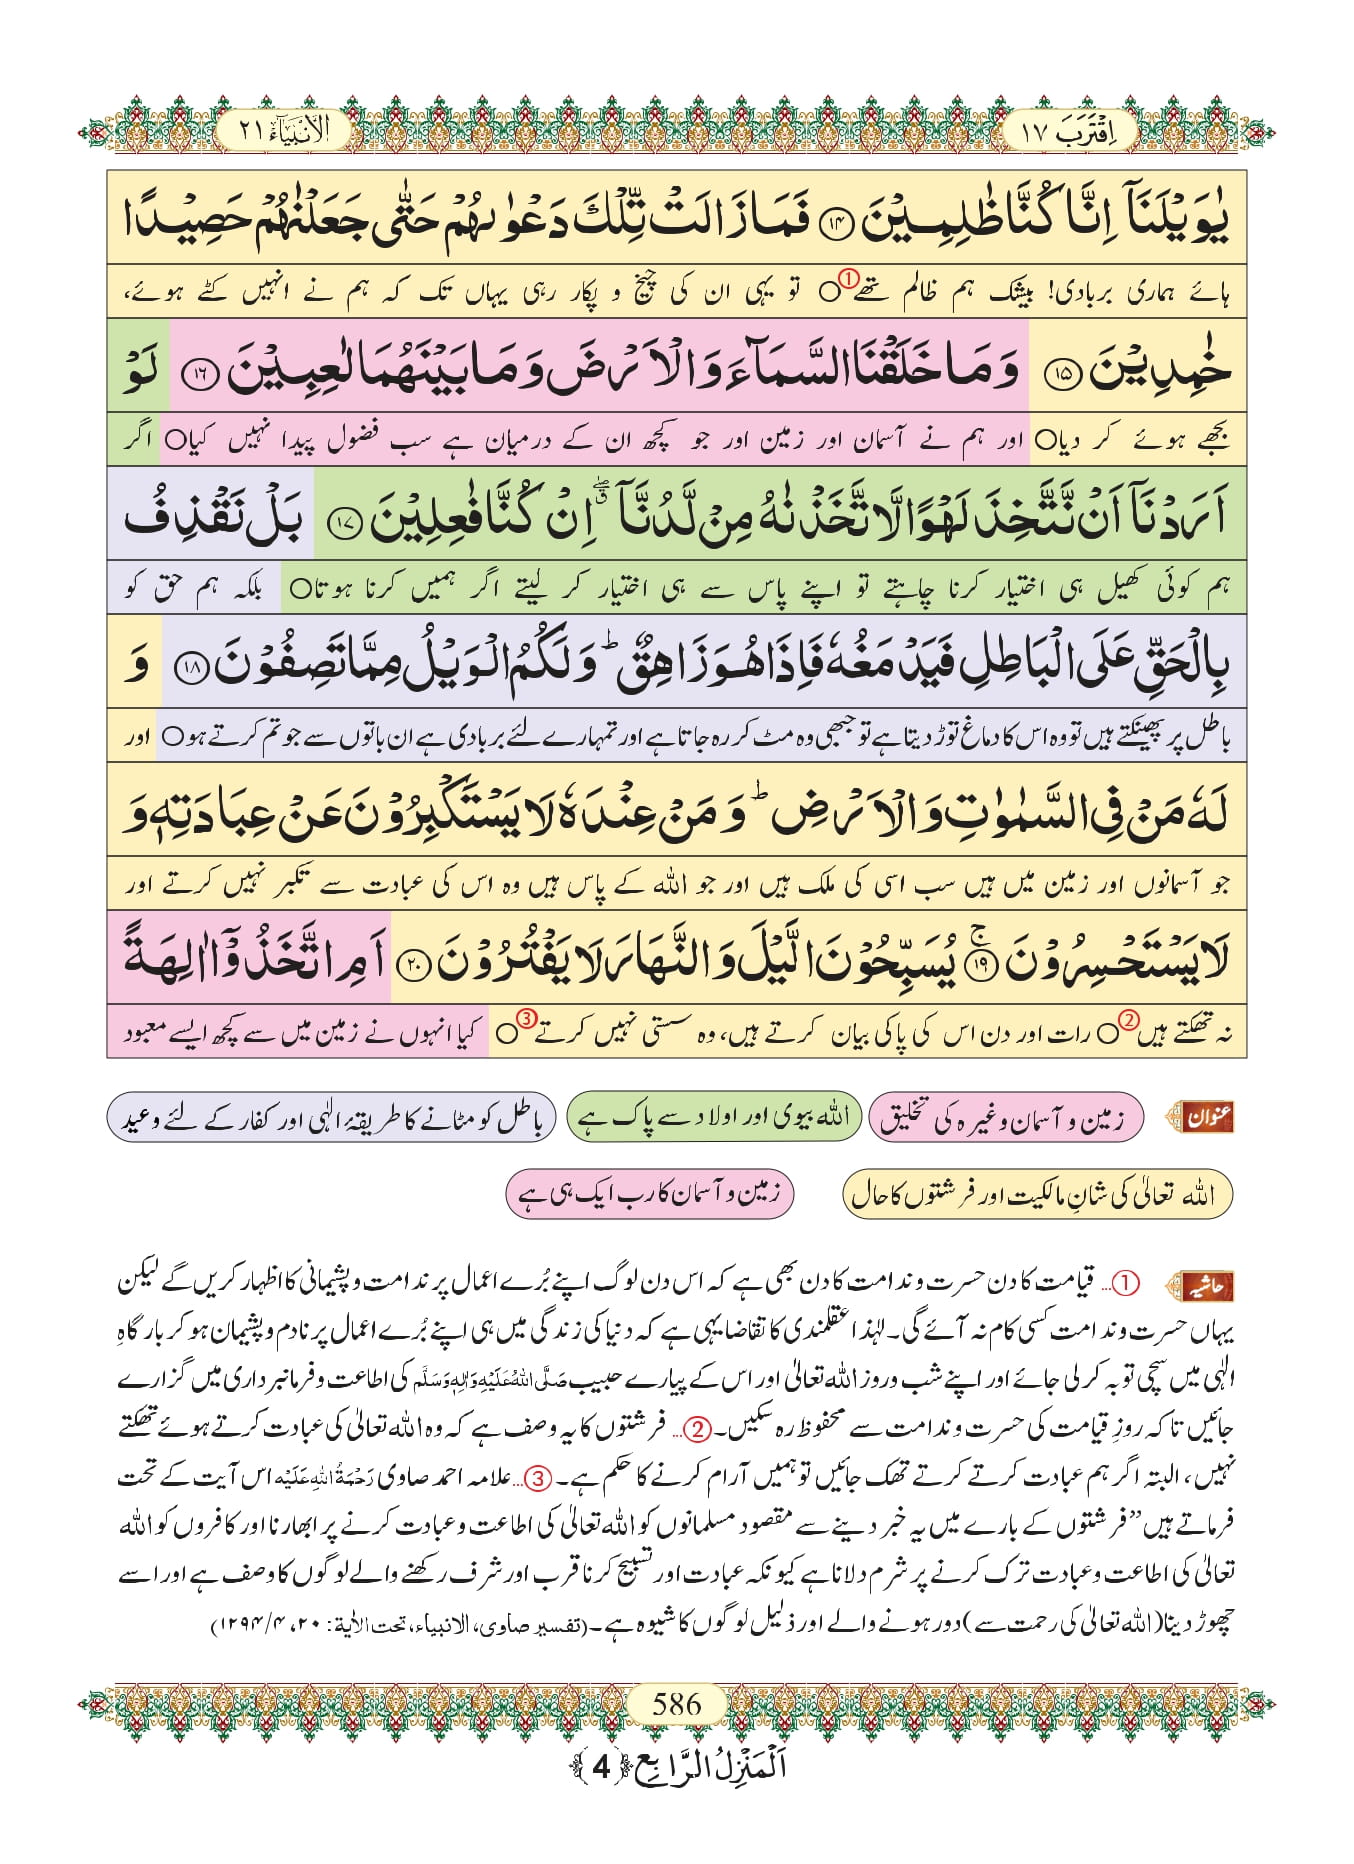 اِقْتَرَبَ ١٧
الْاَنْبِيَآء ٢١
يٰوَيْلَنَاۤ اِنَّا كُنَّا ظٰلِمِيْنَ ﴿۱۴﴾ فَمَا زَالَتْ تِّلْكَ دَعْوٰىهُمْ حَتّٰى جَعَلْنٰهُمْ حَصِيْدًا
ہائے ہماری بربادی! بیشک ہم ظالم تھے ① ○ تو یہی ان کی چیخ و پکار رہی یہاں تک کہ ہم نے انہیں کٹے ہوئے،
خٰمِدِيْنَ ﴿۱۵﴾ وَ مَا خَلَقْنَا السَّمَآءَ وَ الْاَرْضَ وَ مَا بَيْنَهُمَا لٰعِبِيْنَ ﴿۱۶﴾ لَوْ
بجھے ہوئے کر دیا○ اور ہم نے آسمان اور زمین اور جو کچھ ان کے درمیان ہے سب فضول پیدا نہیں کیا○ اگر
اَرَدْنَاۤ اَنْ نَّتَّخِذَ لَهْوًا لَّا تَّخَذْنٰهُ مِنْ لَّدُنَّاۤ ۖۗ اِنْ كُنَّا فٰعِلِيْنَ ﴿۱۷﴾ بَلْ نَقْذِفُ
ہم کوئی کھیل ہی اختیار کرنا چاہتے تو اپنے پاس سے ہی اختیار کر لیتے اگر ہمیں کرنا ہوتا○ بلکہ ہم حق کو
بِالْحَقِّ عَلَى الْبَاطِلِ فَيَدْمَغُهٗ فَاِذَا هُوَ زَاهِقٌ ؕ وَ لَكُمُ الْوَيْلُ مِمَّا تَصِفُوْنَ ﴿۱۸﴾ وَ
باطل پر پھینکتے ہیں تو وہ اس کا دماغ توڑ دیتا ہے تو جبھی وہ مٹ کر رہ جاتا ہے اور تمہارے لئے بربادی ہے ان باتوں سے جو تم کرتے ہو ○ اور
لَهٗ مَنْ فِى السَّمٰوٰتِ وَ الْاَرْضِ ؕ وَ مَنْ عِنْدَهٗ لَا يَسْتَكْبِرُوْنَ عَنْ عِبَادَتِهٖ وَ
جو آسمانوں اور زمین میں ہیں سب اسی کی ملک ہیں اور جو الله کے پاس ہیں وہ اس کی عبادت سے تکبر نہیں کرتے اور
لَا يَسْتَحْسِرُوْنَ ﴿۱۹﴾ۚ يُسَبِّحُوْنَ الَّيْلَ وَ النَّهَارَ لَا يَفْتُرُوْنَ ﴿۲۰﴾ اَمِ اتَّخَذُوْۤا اٰلِهَةً
نہ تھکتے ہیں ② ○ رات اور دن اس کی پاکی بیان کرتے ہیں، وہ سستی نہیں کرتے ③ ○ کیا انہوں نے زمین میں سے کچھ ایسے معبود
عنوان زمین و آسمان وغیرہ کی تخلیق الله بیوی اور اولاد سے پاک ہے باطل کو مٹانے کا طریقۂ الٰہی اور کفار کے لئے وعید
الله تعالیٰ کی شانِ مالکیت اور فرشتوں کا حال زمین و آسمان کا رب ایک ہی ہے
حاشیہ ①... قیامت کا دن حسرت و ندامت کا دن بھی ہے کہ اس دن لوگ اپنے بُرے اعمال پر ندامت و پشیمانی کا اظہار کریں گے لیکن
یہاں حسرت و ندامت کسی کام نہ آئے گی۔ لہٰذا عقلمندی کا تقاضا یہی ہے کہ دنیا کی زندگی میں ہی اپنے بُرے اعمال پر نادم و پشیمان ہو کر بارگاہِ
الٰہی میں سچی توبہ کر لی جائے اور اپنے شب و روز الله تعالیٰ اور اس کے پیارے حبیب صَلَّى اللهُ عَلَيْهِ وَاٰلِهٖ وَسَلَّم کی اطاعت و فرمانبرداری میں گزارے
جائیں تاکہ روزِ قیامت کی حسرت و ندامت سے محفوظ رہ سکیں۔ ②... فرشتوں کا یہ وصف ہے کہ وہ الله تعالیٰ کی عبادت کرتے ہوئے تھکتے
نہیں، البتہ اگر ہم عبادت کرتے کرتے تھک جائیں تو ہمیں آرام کرنے کا حکم ہے۔ ③... علامہ احمد صاوی رَحْمَةُ اللهِ عَلَيْه اس آیت کے تحت
فرماتے ہیں ”فرشتوں کے بارے میں یہ خبر دینے سے مقصود مسلمانوں کو الله تعالیٰ کی اطاعت و عبادت کرنے پر ابھارنا اور کافروں کو الله
تعالیٰ کی اطاعت و عبادت ترک کرنے پر شرم دلانا ہے کیونکہ عبادت اور تسبیح کرنا قرب اور شرف رکھنے والے لوگوں کا وصف ہے اور اسے
چھوڑ دینا (الله تعالیٰ کی رحمت سے) دور ہونے والے اور ذلیل لوگوں کا شیوہ ہے۔ (تفسیر صاوی، الانبیاء، تحت الآیۃ: ۲۰، ۴/۱۲۹۴)
586
اَلْمَنْزِلُ الرَّابِع ﴿4﴾